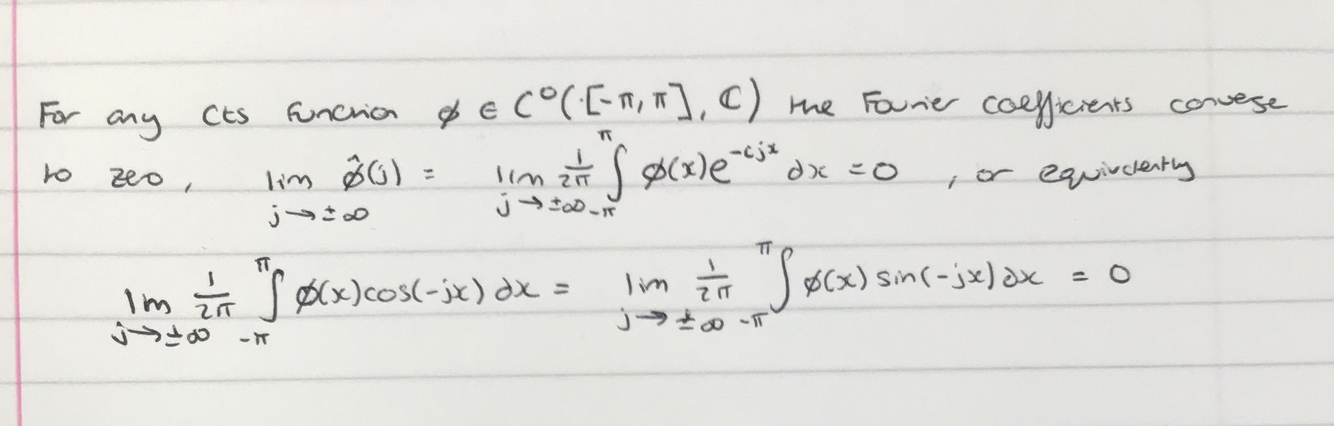 For any cts function φ ∈ C⁰([-π, π], ℂ) the Fourier coefficients converge
to zero, lim_{j→±∞} φ̂(j) = lim_{j→±∞} 1/2π ∫_{-π}^{π} φ(x)e^{-ijx} dx = 0, or equivalently
lim_{j→±∞} 1/2π ∫_{-π}^{π} φ(x)cos(-jx) dx = lim_{j→±∞} 1/2π ∫_{-π}^{π} φ(x) sin(-jx) dx = 0